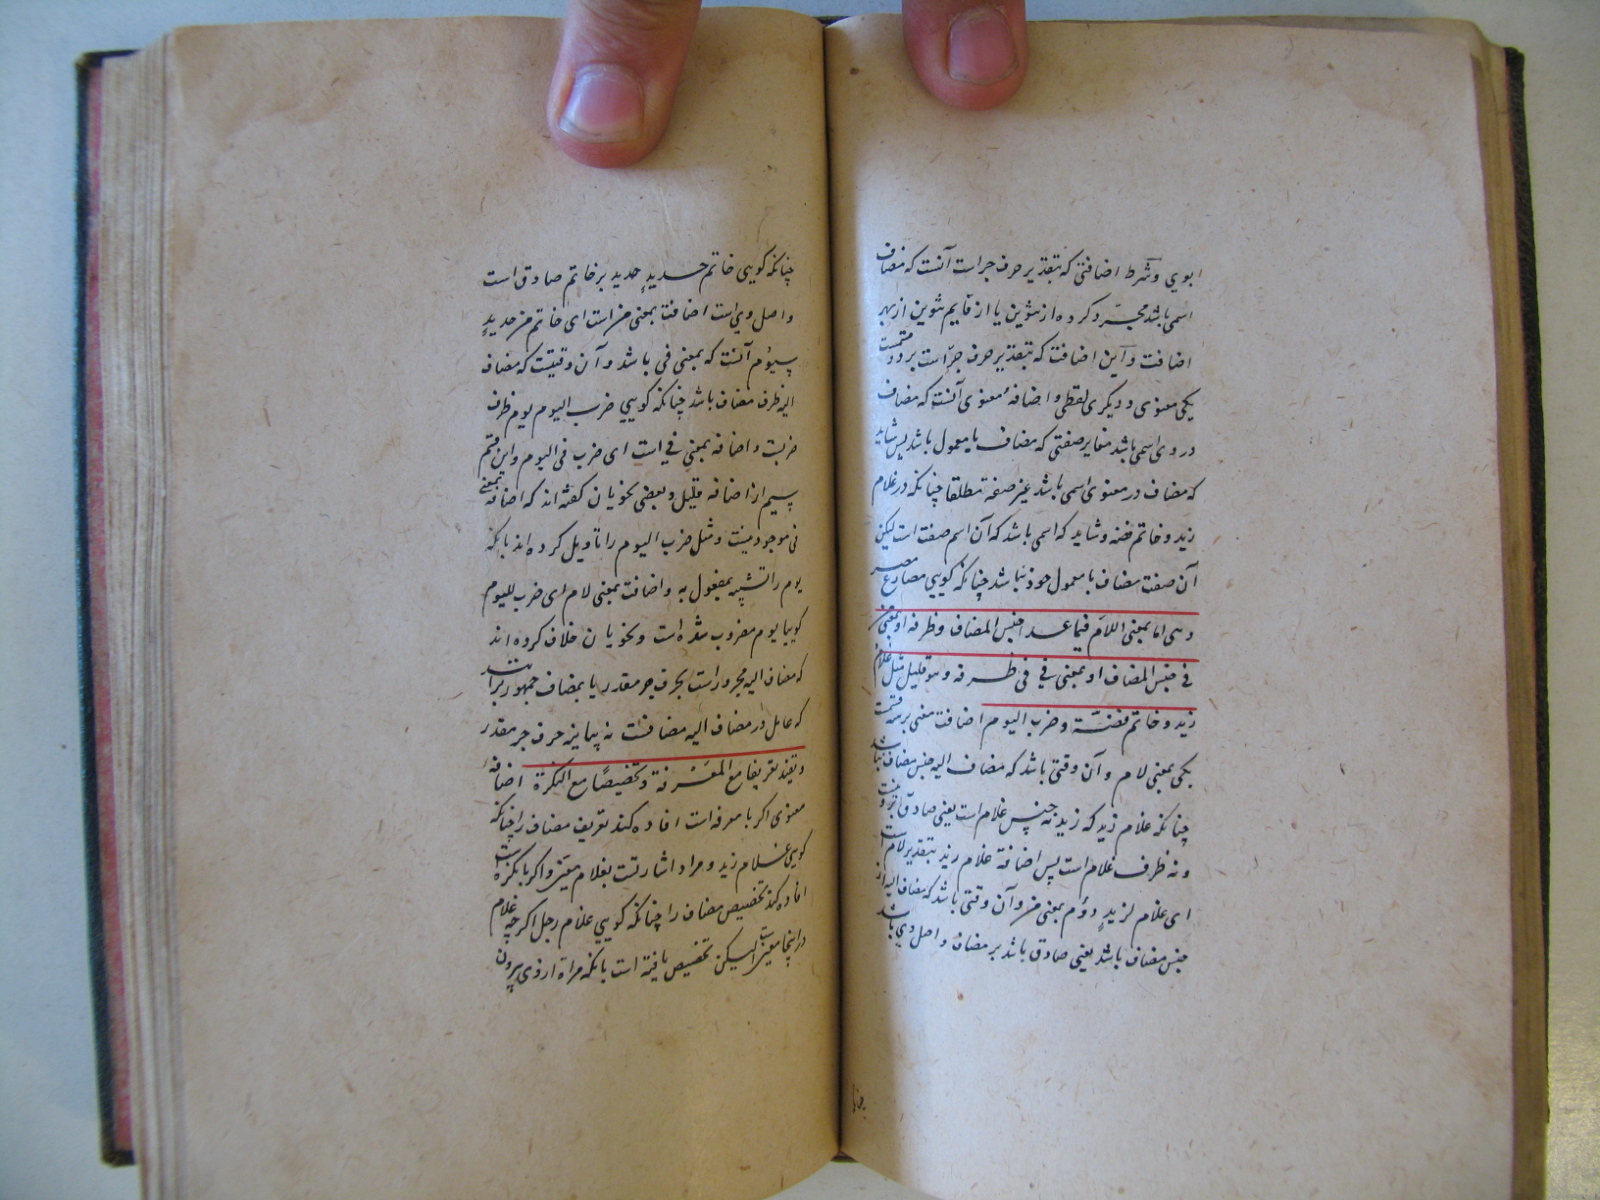 بوي و شرط اضافتی که بتقدیر حرف جر است آنست که مضاف
اسمی باشد مجرّد کرده از تنوین یا از قایم تنوین از بهر
اضافت و این اضافت که بتقدیر حرف جرّ است بر دو قسمست
یکی معنوی و دیگری لفظی و اضافهٔ معنوی آنست که مضاف
در وی اسمی باشد مغایر صفتی که مضاف با معمول باشد پس شاید
که مضاف در معنوی اسمی باشد غیر صفة مطلقا چنانکه در غلام
زید و خاتم فضه و شاید که اسمی باشد که آن اسم صفت است لیکن
آن صفت مضاف با معمول خود نباشد چنانکه کویی مصارع مصر
و هی اما بمعنی اللاّم فیما عدا جنس المضاف و ظرفه او بمعنی من
فی جنس المضاف او بمعنی فی فی ظرفه و هو قلیل مثل غلام
زید و خاتم فضّة و ضرب الیوم اضافت معنی بر سه قسمست
یکی بمعنی لام و آن وقتی باشد که مضاف الیه جنس مضاف نباشد
چنانکه غلام زید که زید نه جنس غلام است یعنی صادق برو نیست
و نه ظرف غلام است پس اضافة غلام زید بتقدیر لام است
ای غلام لزیدٍ دوّم بمعنی من و آن وقتی باشد که مضاف الیه از
جنس مضاف باشد یعنی صادق باشد بر مضاف و اصل وي باشد
چنانکه کویی خاتم حدیدٍ حدید بر خاتم صادق است
و اصل وي است اضافت بمعنی من است ای خاتم من حدیدٍ
سیوّم آنست که بمعنی فی باشد و آن وقتیست که مضاف
الیه ظرف مضاف باشد چنانکه کویی ضرب الیوم یوم ظرف
ضربست و اضافه بمعنی فی است ای ضرب فی الیوم و این قسم
سیم از اضافه قلیل و بعضی نحویان کفته اند که اضافه بمعنی
فی موجود نیست و مثل ضرب الیوم را تأویل کرده اند بانکه
یوم را تشبیه بمفعول به و اضافت بمعنی لام ای ضرب للیوم
کوییا یوم مضروب شده است و نحویان خلاف کرده اند
که مضاف الیه مجرور است بحرف جر مقدر یا بمضاف جمهور برانند
که عامل در مضاف الیه مضافست نه حرف جر مقدر
و تفید تعریفا مع المعرفة و تخصیصًا مع النکرة اضافهٔ
معنوی اکر با معرفه است افاده کند تعریف مضاف را چنانکه
کویی غلام زید و مراد اشارتست بغلام معیّن و اکر با نکره است
افاده کند تخصیص مضاف را چنانکه کویی غلام رجل اکر چه غلام
در اینجا معین لیکن تخصیص یافته است بانکه مراة ازوی بیرون